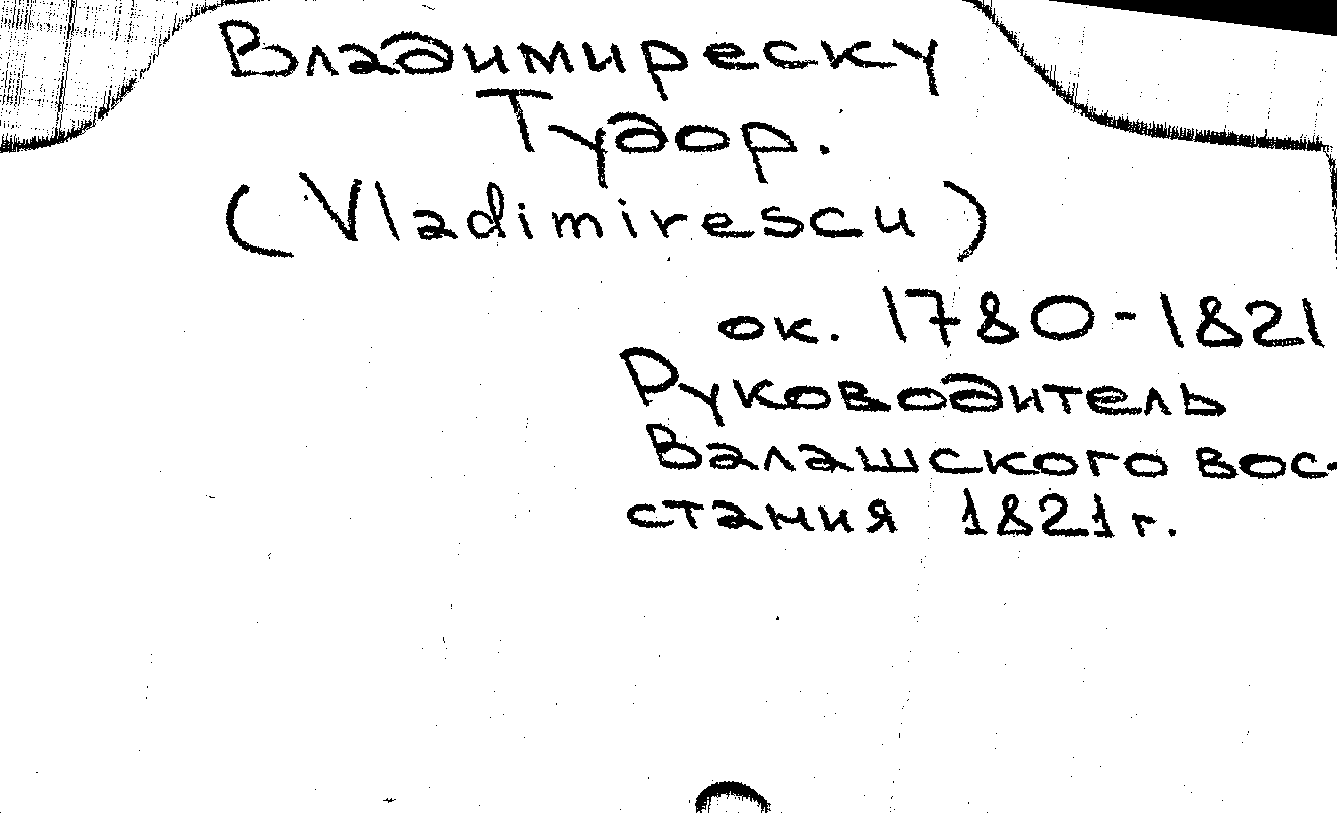 Владимиреску
Тудор.
(Vladimirescu)
ок. 1780-1821
Руководитель
Валашского вос-
стания 1821 г.